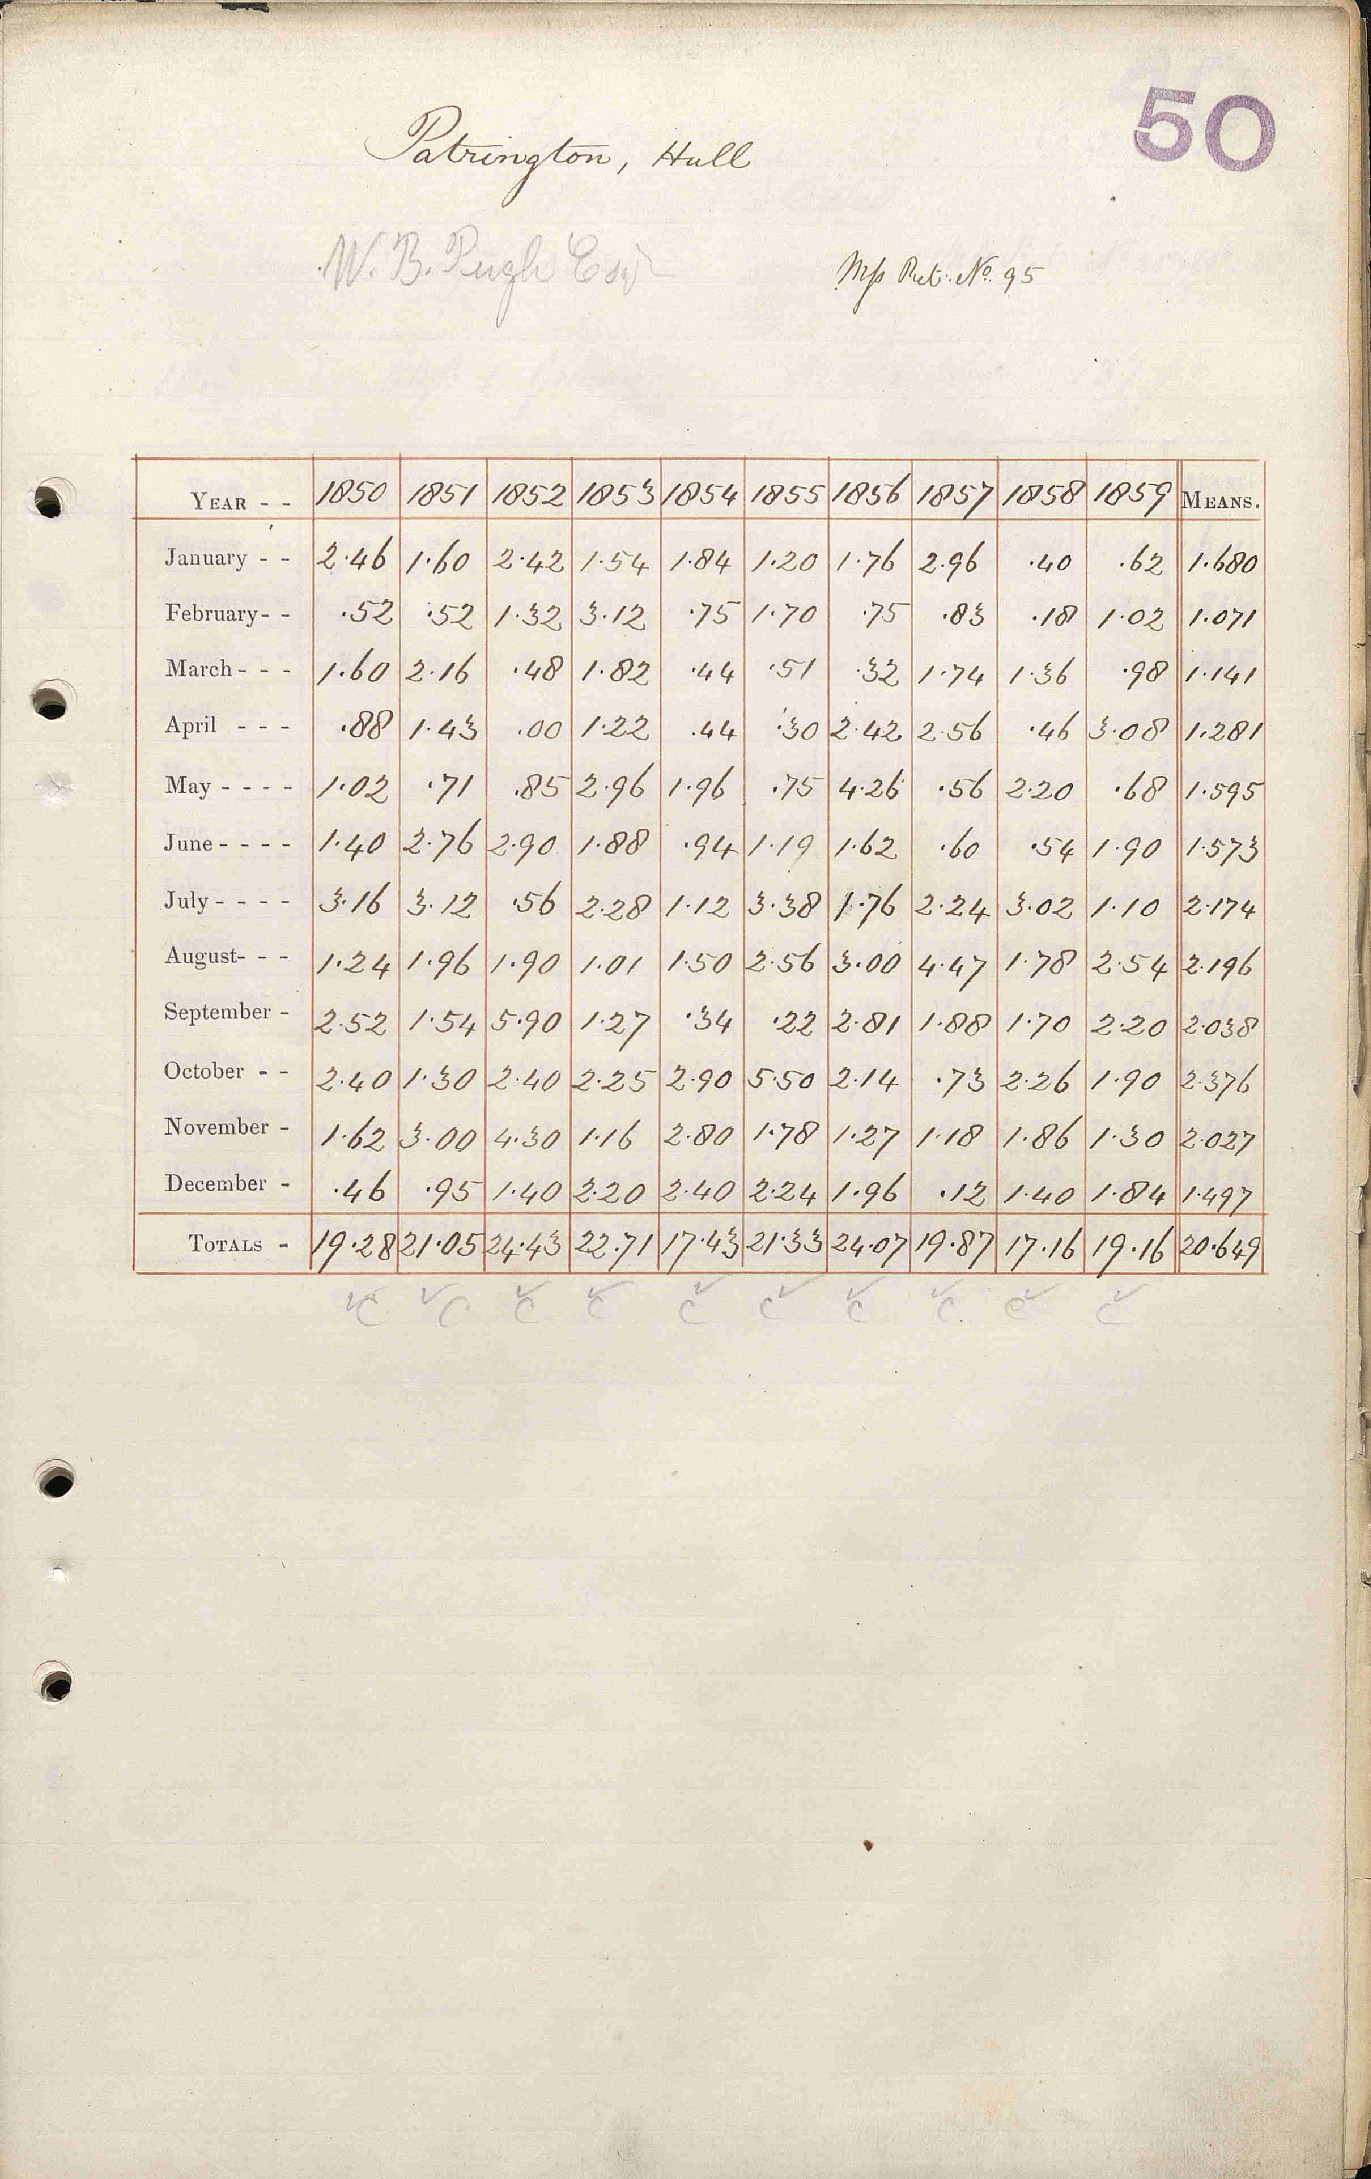 50
Patrington, Hull
W. B. Pugh Esqr
Mss Ret. No. 95
YEAR - - 1850 1851 1852 1853 1854 1855 1856 1857 1858 1859 MEANS.
January - - 2.46 1.60 2.42 1.54 1.84 1.20 1.76 2.96 .40 .62 1.680
February - - .52 .52 1.32 3.12 .75 1.70 .75 .83 .18 1.02 1.071
March - - - 1.60 2.16 .48 1.82 .44 .51 .32 1.74 1.36 .98 1.141
April - - - .88 1.43 .00 1.22 .44 .30 2.42 2.56 .46 3.08 1.281
May - - - - 1.02 .71 .85 2.96 1.96 .75 4.26 .56 2.20 .68 1.595
June - - - - 1.40 2.76 2.90 1.88 .94 1.19 1.62 .60 .54 1.90 1.573
July - - - - 3.16 3.12 .56 2.28 1.12 3.38 1.76 2.24 3.02 1.10 2.174
August - - - 1.24 1.96 1.90 1.01 1.50 2.56 3.00 4.47 1.78 2.54 2.196
September - 2.52 1.54 5.90 1.27 .34 .22 2.81 1.88 1.70 2.20 2.038
October - - 2.40 1.30 2.40 2.25 2.90 5.50 2.14 .73 2.26 1.90 2.376
November - 1.62 3.00 4.30 1.16 2.80 1.78 1.27 1.18 1.86 1.30 2.027
December - .46 .95 1.40 2.20 2.40 2.24 1.96 .12 1.40 1.84 1.497
TOTALS - 19.28 21.05 24.43 22.71 17.43 21.33 24.07 19.87 17.16 19.16 20.649
C C C C C C C C C C